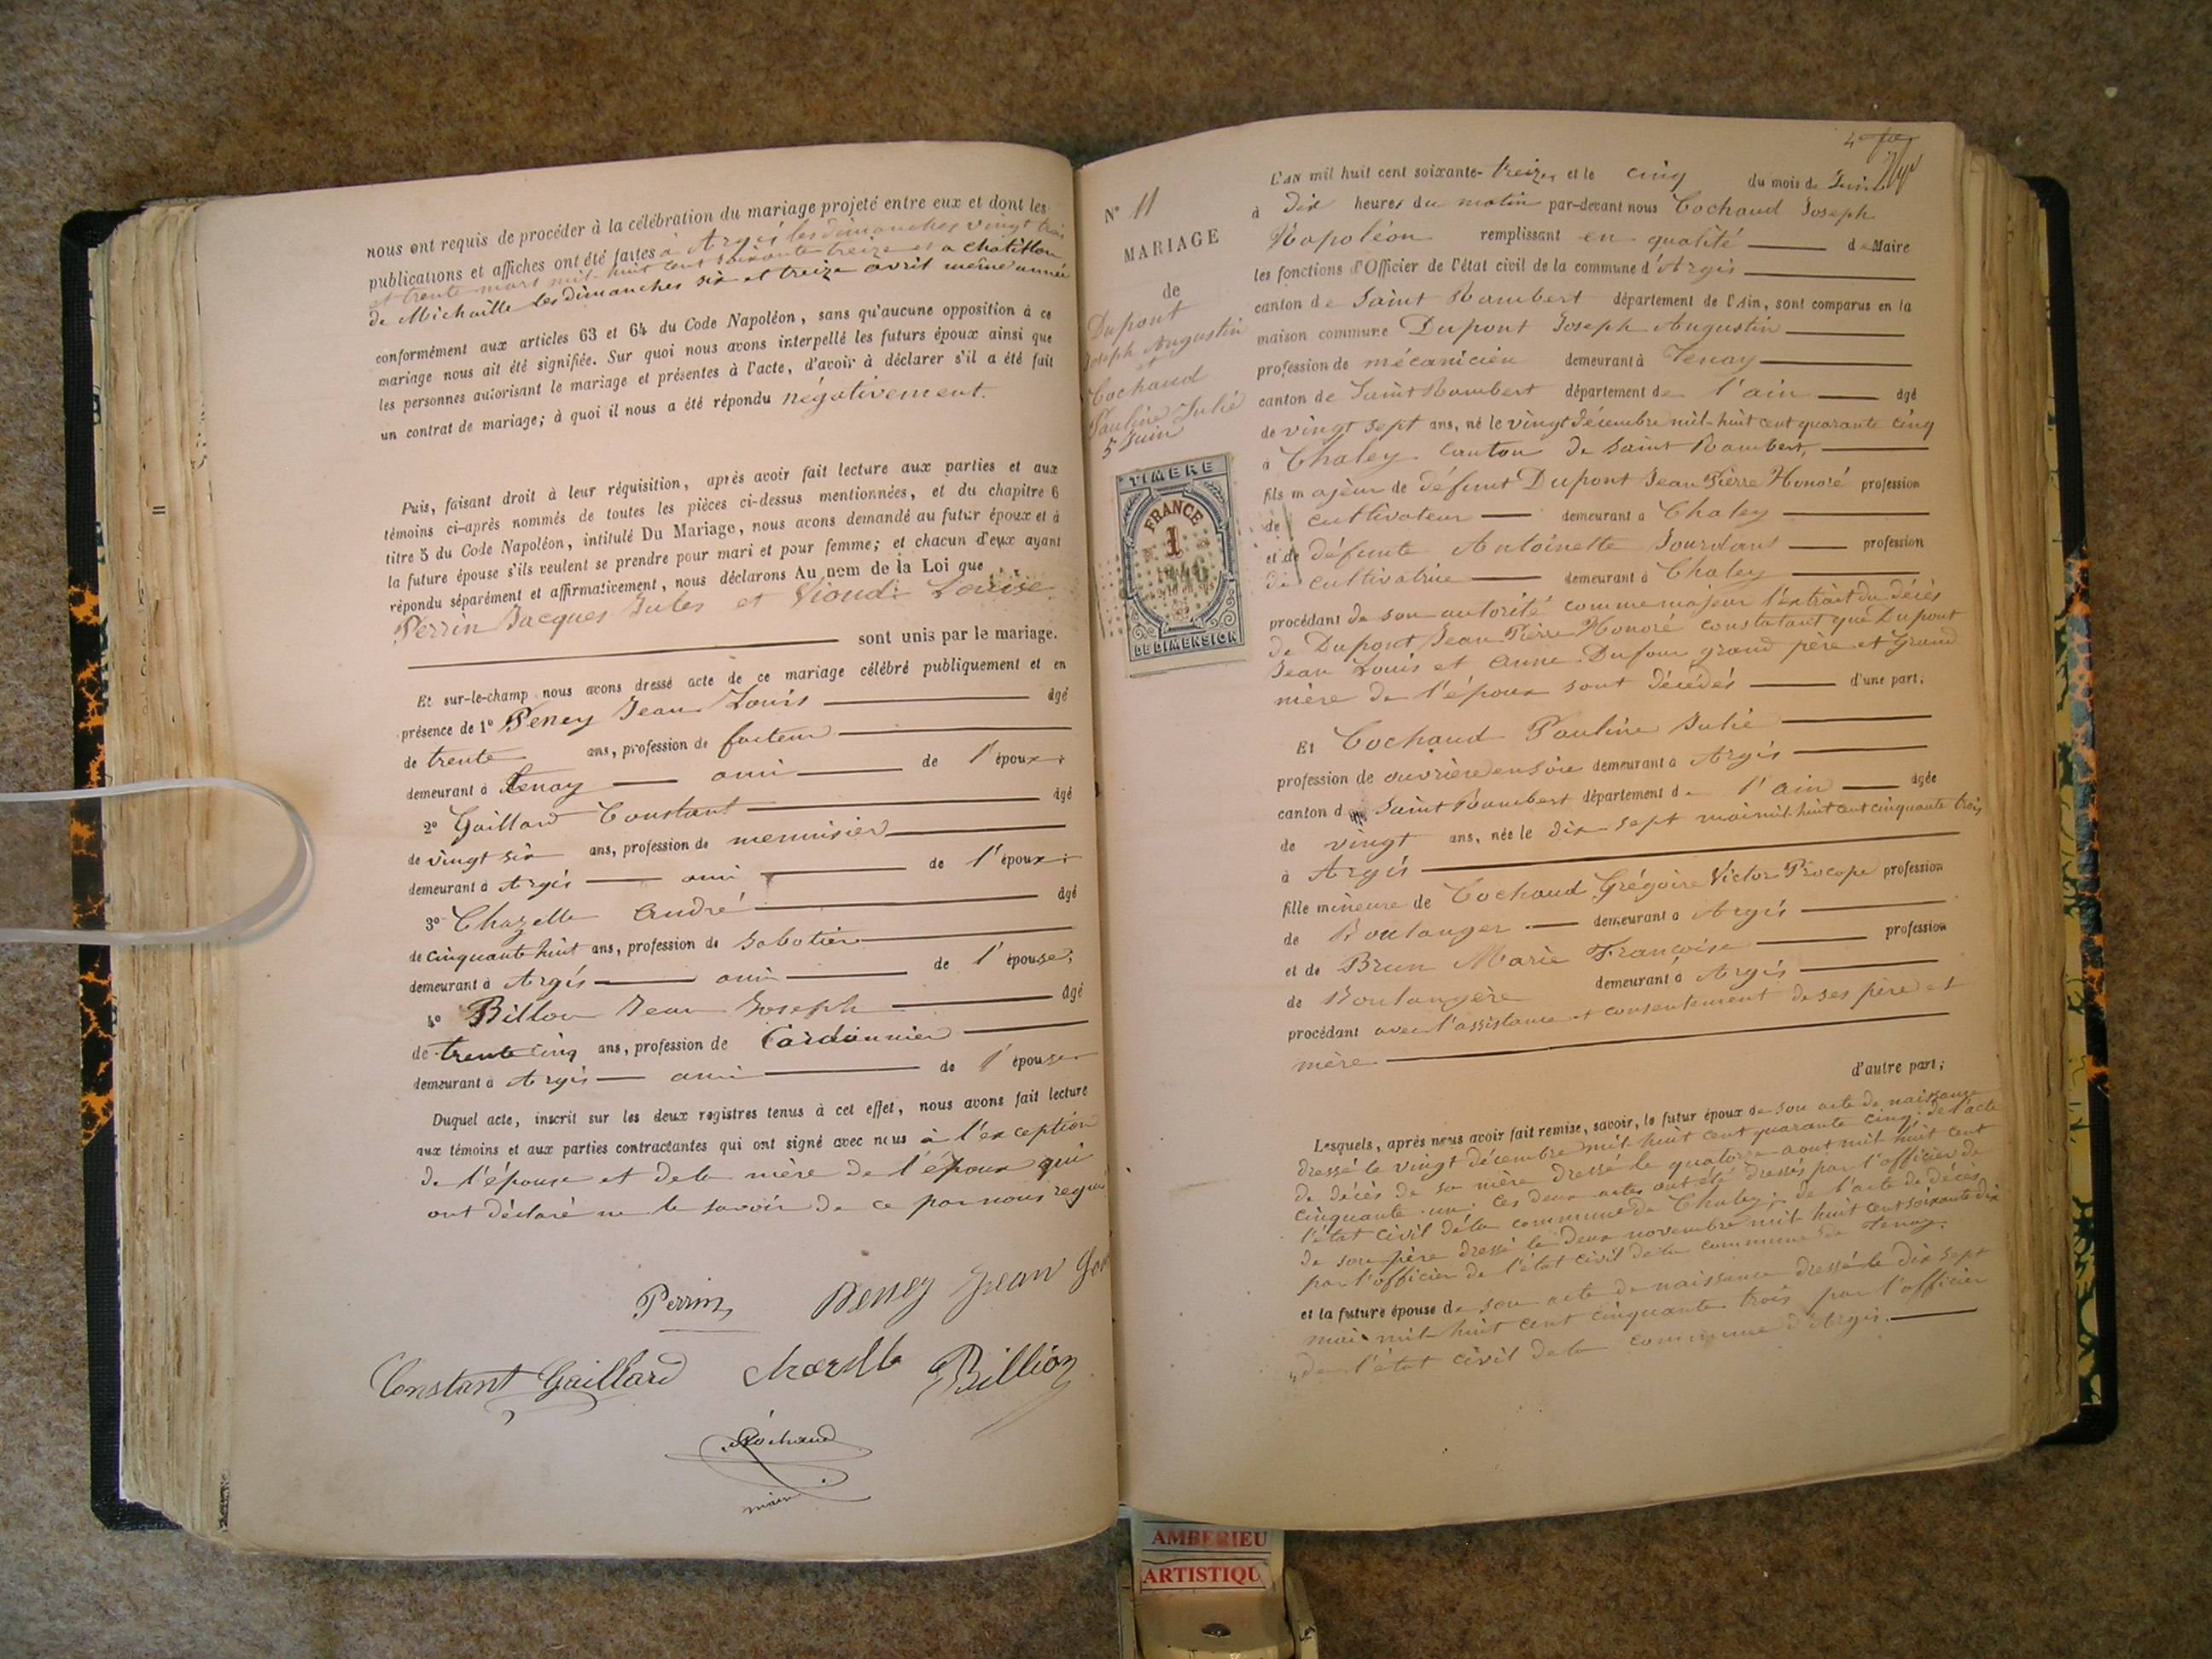 nous ont requis de procéder à la célébration du mariage projeté entre eux et dont les
publications et affiches ont été faites à Argis les dimanches vingt trois
et trente mars mil huit cent soixante treize et a Chatillon
de Michaille les dimanches six et treize avril même année
conformément aux articles 63 et 64 du Code Napoléon, sans qu'aucune opposition à ce
mariage nous ait été signifiée. Sur quoi nous avons interpellé les futurs époux ainsi que
les personnes autorisant le mariage et présentes à l'acte, d'avoir à déclarer s'il a été fait
un contrat de mariage; à quoi il nous a été répondu négativement.
Puis, faisant droit à leur réquisition, après avoir fait lecture aux parties et aux
témoins ci-après nommés de toutes les pièces ci-dessus mentionnées, et du chapitre 6
titre 5 du Code Napoléon, intitulé Du Mariage, nous avons demandé au futur époux et à
la future épouse s'ils veulent se prendre pour mari et pour femme; et chacun d'eux ayant
répondu séparément et affirmativement, nous déclarons Au nom de la Loi que
Perrin Jacques Jules et Vioud Louise
sont unis par le mariage.
Et sur-le-champ nous avons dressé acte de ce mariage célébré publiquement et en
présence de 1° Peney Jean Louis âgé
de trente ans, profession de facteur
demeurant à Tenay ami de l'époux;
2° Gaillard Constant âgé
de vingt six ans, profession de menuisier
demeurant à Argis ami de l'époux;
3° Chazelle André âgé
de cinquante huit ans, profession de sabotier
demeurant à Argis ami de l'épouse;
4° Billon Jean Joseph âgé
de trente cinq ans, profession de Cordonnier
demeurant à Argis ami de l'épouse
Duquel acte, inscrit sur les deux registres tenus à cet effet, nous avons fait lecture
aux témoins et aux parties contractantes qui ont signé avec nous à l'exception
de l'épouse et de la mère de l'époux qui
ont déclaré ne le savoir de ce par nous requis
Perrin Peney Jean
Constant Gaillard Billion
Cochaud
maire
N° 11
MARIAGE
de
Dupont
Joseph Augustin
et
Cochaud
Pauline Julie
5 Juin
TIMBRE
FRANCE
1
DE DIMENSION
L'an mil huit cent soixante-treize, et le cinq du mois de Juin
à dix heures du matin par-devant nous Cochaud Joseph
Napoléon remplissant en qualité de Maire
les fonctions d'Officier de l'état civil de la commune d'Argis
canton de Saint Rambert département de l'Ain, sont comparus en la
maison commune Dupont Joseph Augustin
profession de mécanicien demeurant à Tenay
canton de Saint Rambert département de l'ain âgé
de vingt sept ans, né le vingt décembre mil-huit cent quarante cinq
à Chaley Canton de Saint Rambert,
fils majeur de défunt Dupont Jean Pierre Honoré profession
de cultivateur demeurant à Chaley
et de défunte Antoinette Jourdan profession
de cultivatrice demeurant à Chaley
procédant de son autorité comme majeur l'extrait du décès
de Dupont Jean Pierre Honoré constatant que Dupont
Jean Louis et Anne Dufour grand père et Grand
mère de l'époux sont décédés d'une part;
Et Cochaud Pauline Julie
profession de ouvrière en soie demeurant à Argis
canton de Saint Rambert département de l'ain âgée
de vingt ans, née le dix sept mai mil-huit cent cinquante trois
à Argis
fille mineure de Cochaud Grégoire Victor Procope profession
de Boulanger demeurant à Argis
et de Brun Marie Françoise profession
de Boulangère demeurant à Argis
procédant avec l'assistance et consentement de ses père et
mère
d'autre part;
Lesquels, après nous avoir fait remise, savoir, le futur époux de son acte de naissance
dressé le vingt décembre mil huit cent quarante cinq; de l'acte
de décès de sa mère dressé le quatorze aout mil huit cent
cinquante un. Ces deux actes ont été dressés par l'officier de
l'état civil de la commune de Chaley; de l'acte de décès
de son père dressé le deux novembre mil huit cent soixante dix
par l'officier de l'état civil de la commune de Tenay.
et la future épouse de son acte de naissance dressé le dix sept
mai mil huit cent cinquante trois par l'officier
de l'état civil de la commune d'Argis.
AMBERIEU
ARTISTIQU